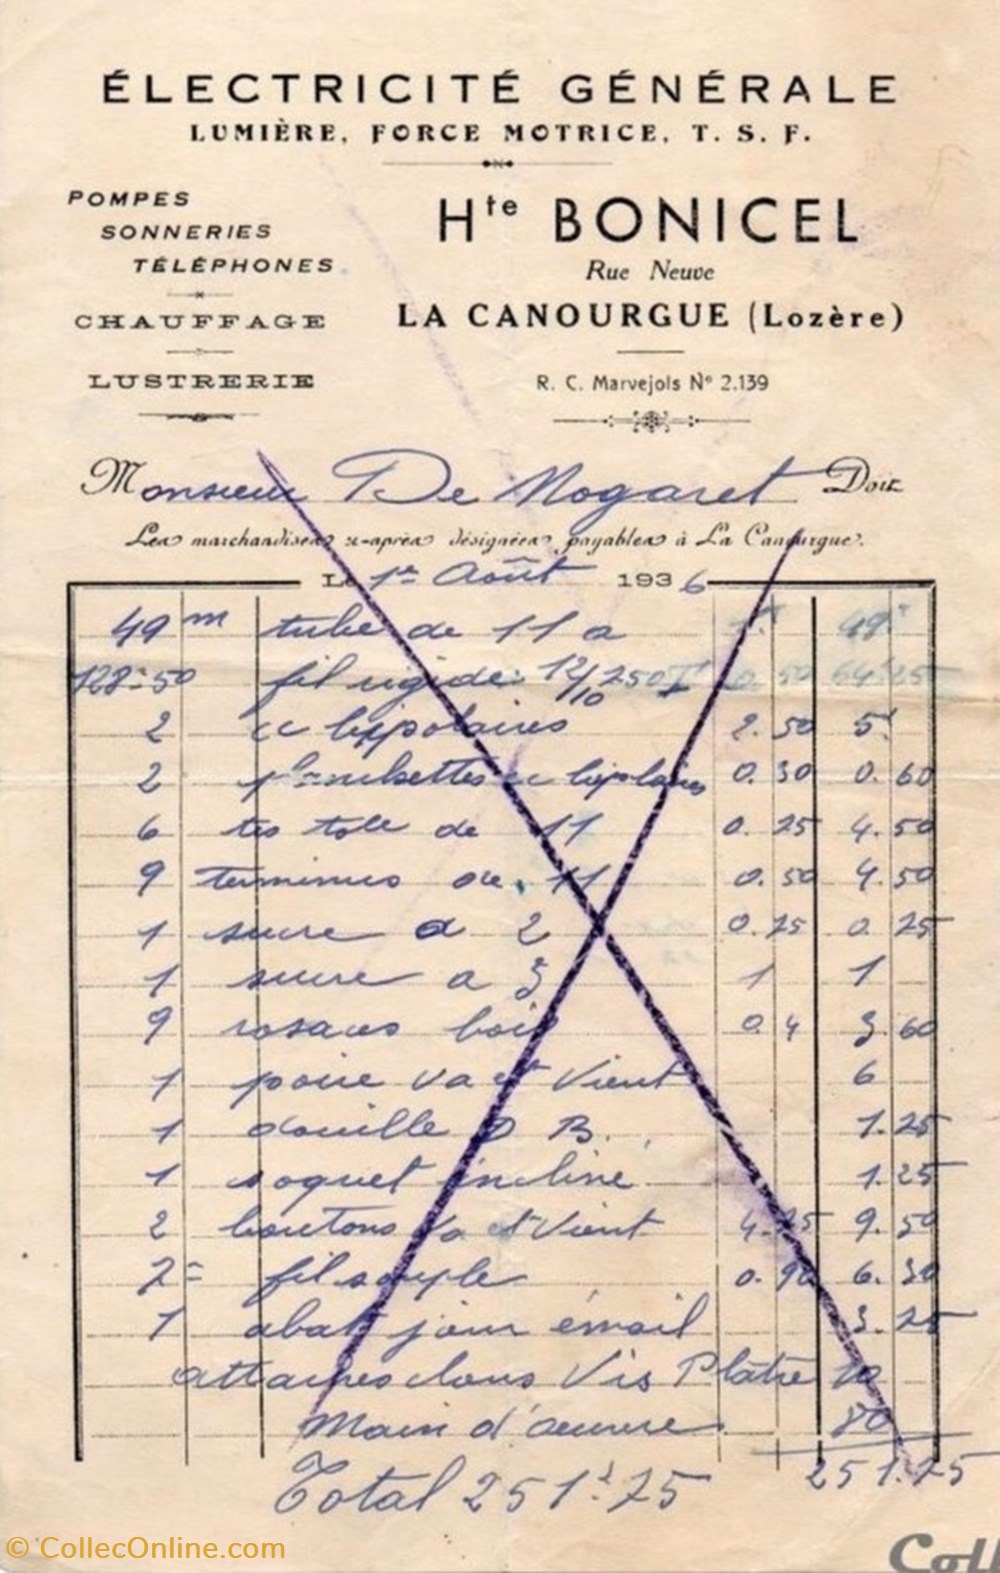 ÉLECTRICITÉ GÉNÉRALE
LUMIÈRE, FORCE MOTRICE, T. S. F.
POMPES
SONNERIES
TÉLÉPHONES
CHAUFFAGE
LUSTRERIE
Hte BONICEL
Rue Neuve
LA CANOURGUE (Lozère)
R. C. Marvejols No 2.139
Monsieur De Nogaret Doit
Les marchandises ci-après désignées, payables à La Canourgue.
Le 1er Août 1936
49 m tube de 11 a 1f 49f
128=50 fil rigide 12/10 250 0.50 64.25
2 cc bippolaires 2.50 5f
2 cc 0.30 0.60
6 tes tole de 11 0.25 4.50
9 terminus de 11 0.50 4.50
1 sucre a 2 0.25 0.25
1 sucre a 3 1 1
9 rosaces bois 0.4 3.60
1 poire va et vient 6
1 douille D B. 1.25
1 soquet incliné 1.25
2 boutons va et vient 4.75 9.50
7= fil souple 0.90 6.30
1 abat jour émail 3.25
attaches clous Vis Platre 10
Main d'œuvre 80
251.75
Total 251f.75
© CollecOnline.com
Coll